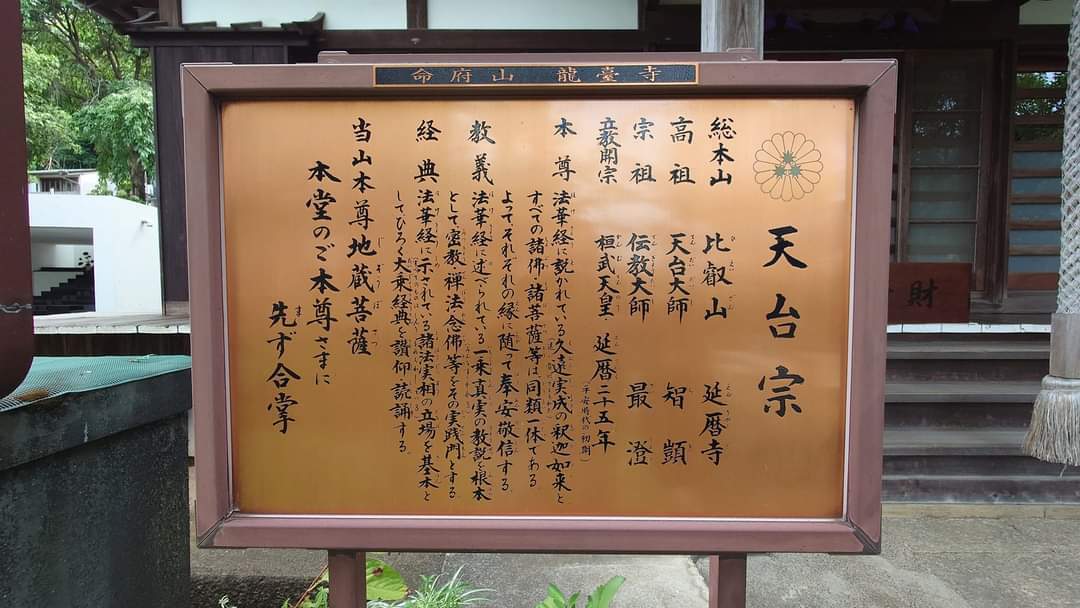 命府山 龍臺寺
天台宗
総本山 比叡山 延暦寺
高祖 天台大師 智顗
宗祖 伝教大師 最澄
立教開宗 桓武天皇 延暦二十五年
(平安時代の初期)
本尊 法華経に説かれている久遠実成の釈迦如来と
すべての諸佛・諸菩薩等は、同類一体である
よって、それぞれの縁に随って奉安敬信する。
教義 法華経に述べられている一乗真実の教説を根本
として密教、禅法、念佛等をその実践門とする
経典 法華経に示されている諸法実相の立場を基本と
して、ひろく大乗経典を讃仰、読誦する。
当山本尊地蔵菩薩
本堂のご本尊さまに
先ず合掌
財